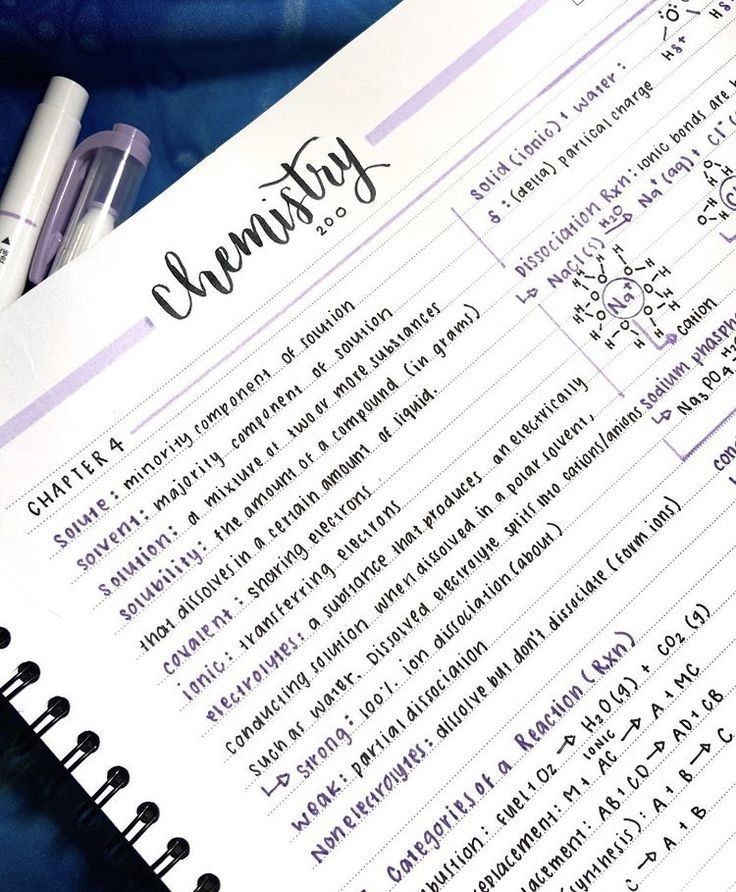 chemistry
200
CHAPTER 4
solute: minority component of solution
solvent: majority component of solution
solution: a mixture of two or more substances
solubility: the amount of a compound (in grams)
that dissolves in a certain amount of liquid.
covalent: sharing electrons
ionic: transferring electrons
electrolytes: a substance that produces an electrically
conducting solution when dissolved in a polar solvent,
such as water. Dissolved electrolyte splits into cations/anions
↳ strong: 100% ion dissociation (about)
weak: partial dissociation
Nonelectrolytes: dissolve but don't dissociate (form ions)
Categories of a Reaction (Rxn)
bustion: fuel + O2 → H2O(g) + CO2 (g)
eplacement: M + AC IONIC → A + MC
acement: AB + CD → AD + CB
synthesis): A + B → C
C → A + B
O
Hδ+
solid (ionic) + water:
δ: (delta) partical charge
Dissociation Rxn: ionic bonds are
↳ NaCl(s) H2O → Na+(aq) + Cl-
Na+
cation
sodium phosph
↳ Na3PO4 H2
con